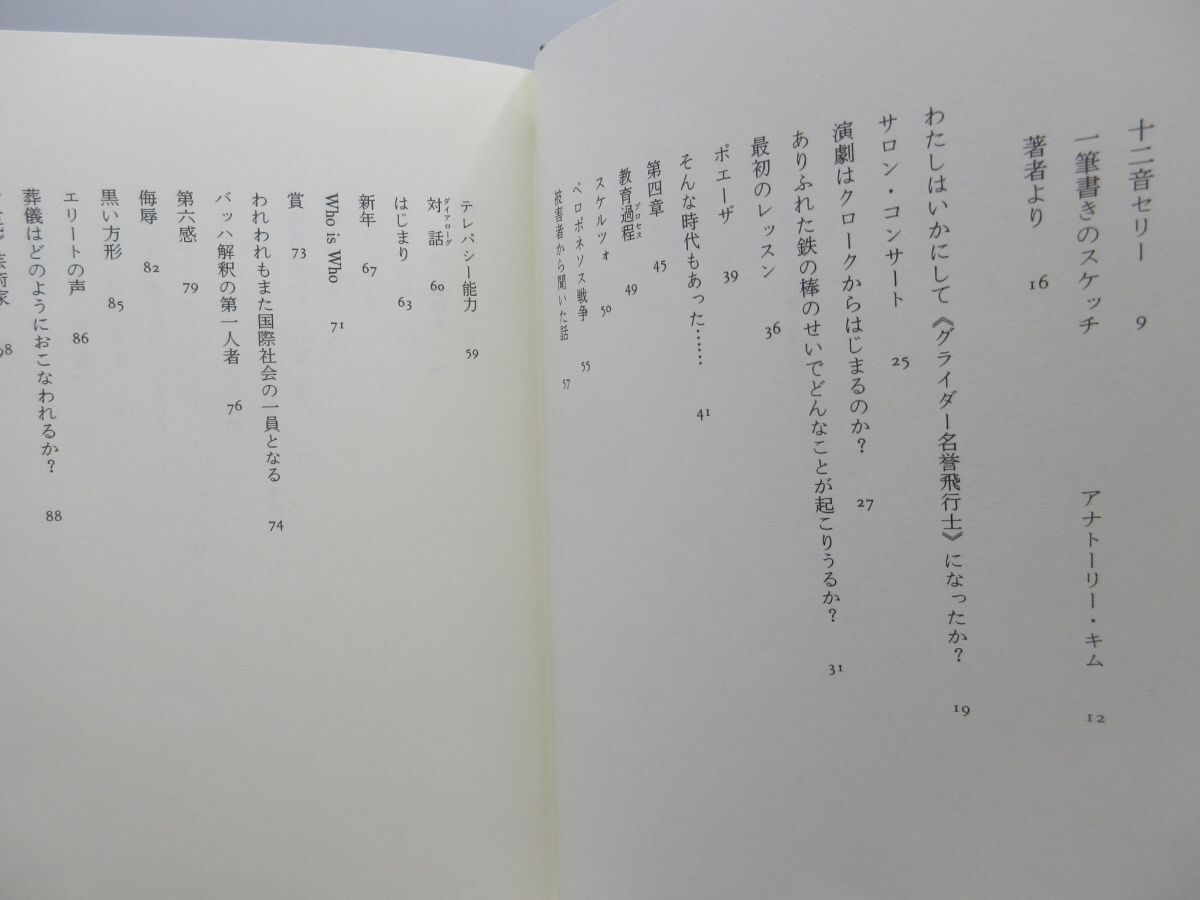 十二音セリー 9
一筆書きのスケッチ アナトーリー・キム 12
著者より 16
わたしはいかにして《グライダー名誉飛行士》になったか? 19
サロン・コンサート 25
演劇はクロークからはじまるのか? 27
ありふれた鉄の棒のせいでどんなことが起こりうるか? 31
最初のレッスン 36
ポエーザ 39
そんな時代もあった…… 41
第四章 45
教育過程 プロセス 49
スケルツォ 50
ペロポネソス戦争 55
被害者から聞いた話 57
テレパシー能力 59
対話 ダイアローグ 60
はじまり 63
新年 67
Who is Who 71
賞 73
われわれもまた国際社会の一員となる 74
バッハ解釈の第一人者 76
第六感 79
侮辱 82
黒い方形 85
エリートの声 86
葬儀はどのようにおこなわれるか? 88
芸術家 98